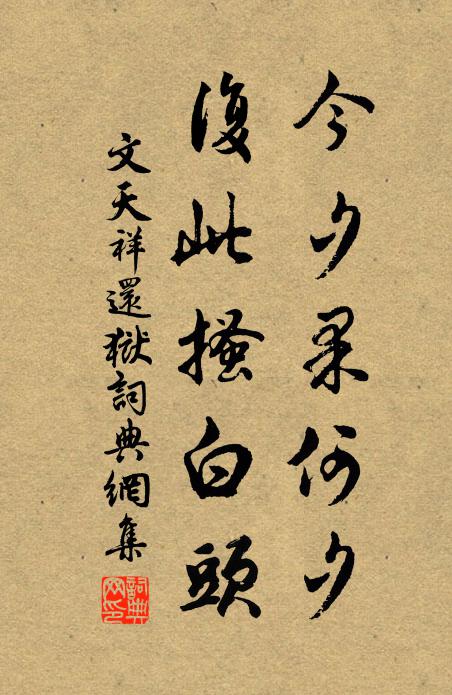 今夕果何夕
復此搔白頭
文天祥還獄詞典網集
詞典網印